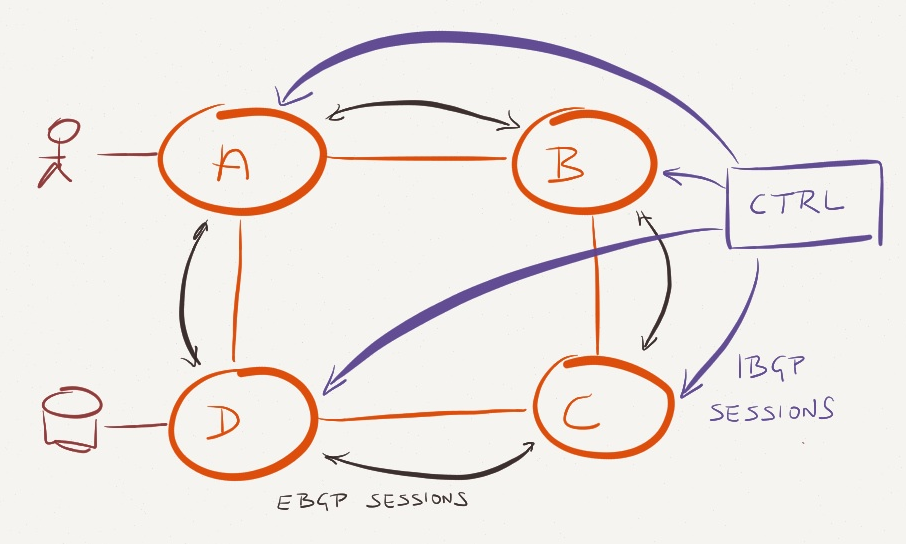 A
B
CTRL
D
C
IBGP
SESSIONS
EBGP SESSIONS